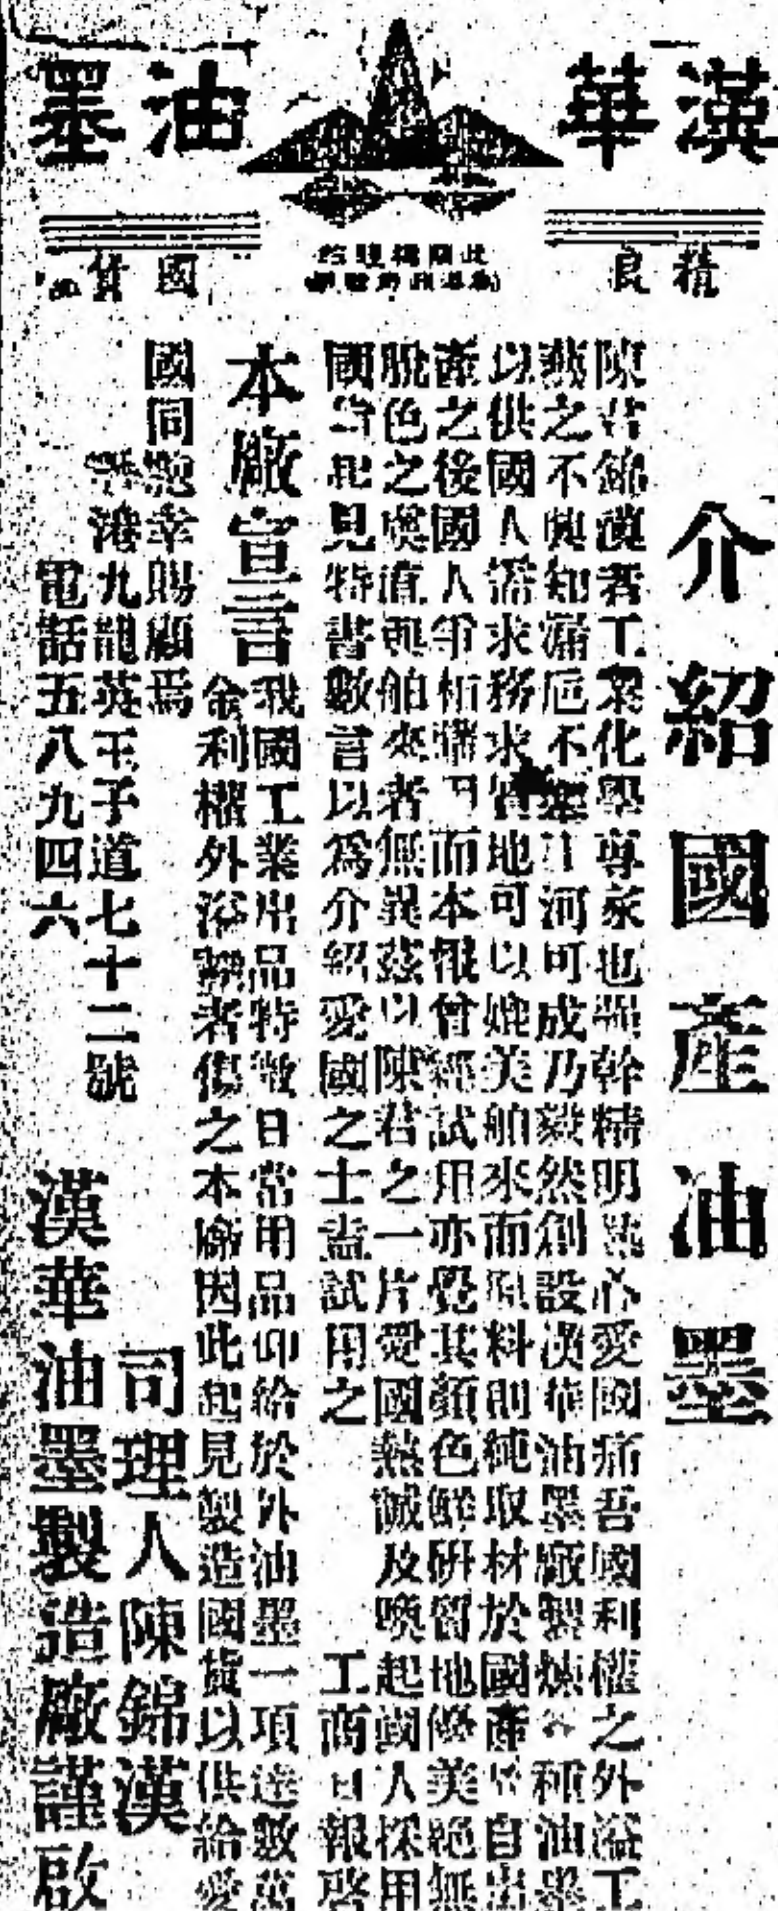 漢華
油墨
精良
國貨
介紹國產油墨
陳君錦漢者工業化學專家也幹精明熱心愛國痛吾國利權之外溢工
藝之不興知漏巵不塞江河可成乃毅然創設漢華油墨廠製煉各種油墨
以供國人需求務求質地可以媲美舶來而原料則純取材於國產自出
產之後國人爭相購用而本報曾經試用亦覺其顏色鮮研質地優美絕無
脫色之虞直與舶來者無異茲以陳君之一片愛國熱誠及喚起國人採用
國貨起見特書數言以為介紹愛國之士盍試用之 工商日報啓
本廠宣言
我國工業出品特微日常用品仰給於外油墨一項達數萬
金利權外溢者傷之本廠因此起見製造國貨以供給愛
國同胞幸賜顧焉
香港九龍英王子道七十二號
電話五八九四六
司理人陳錦漢
漢華油墨製造廠謹啟